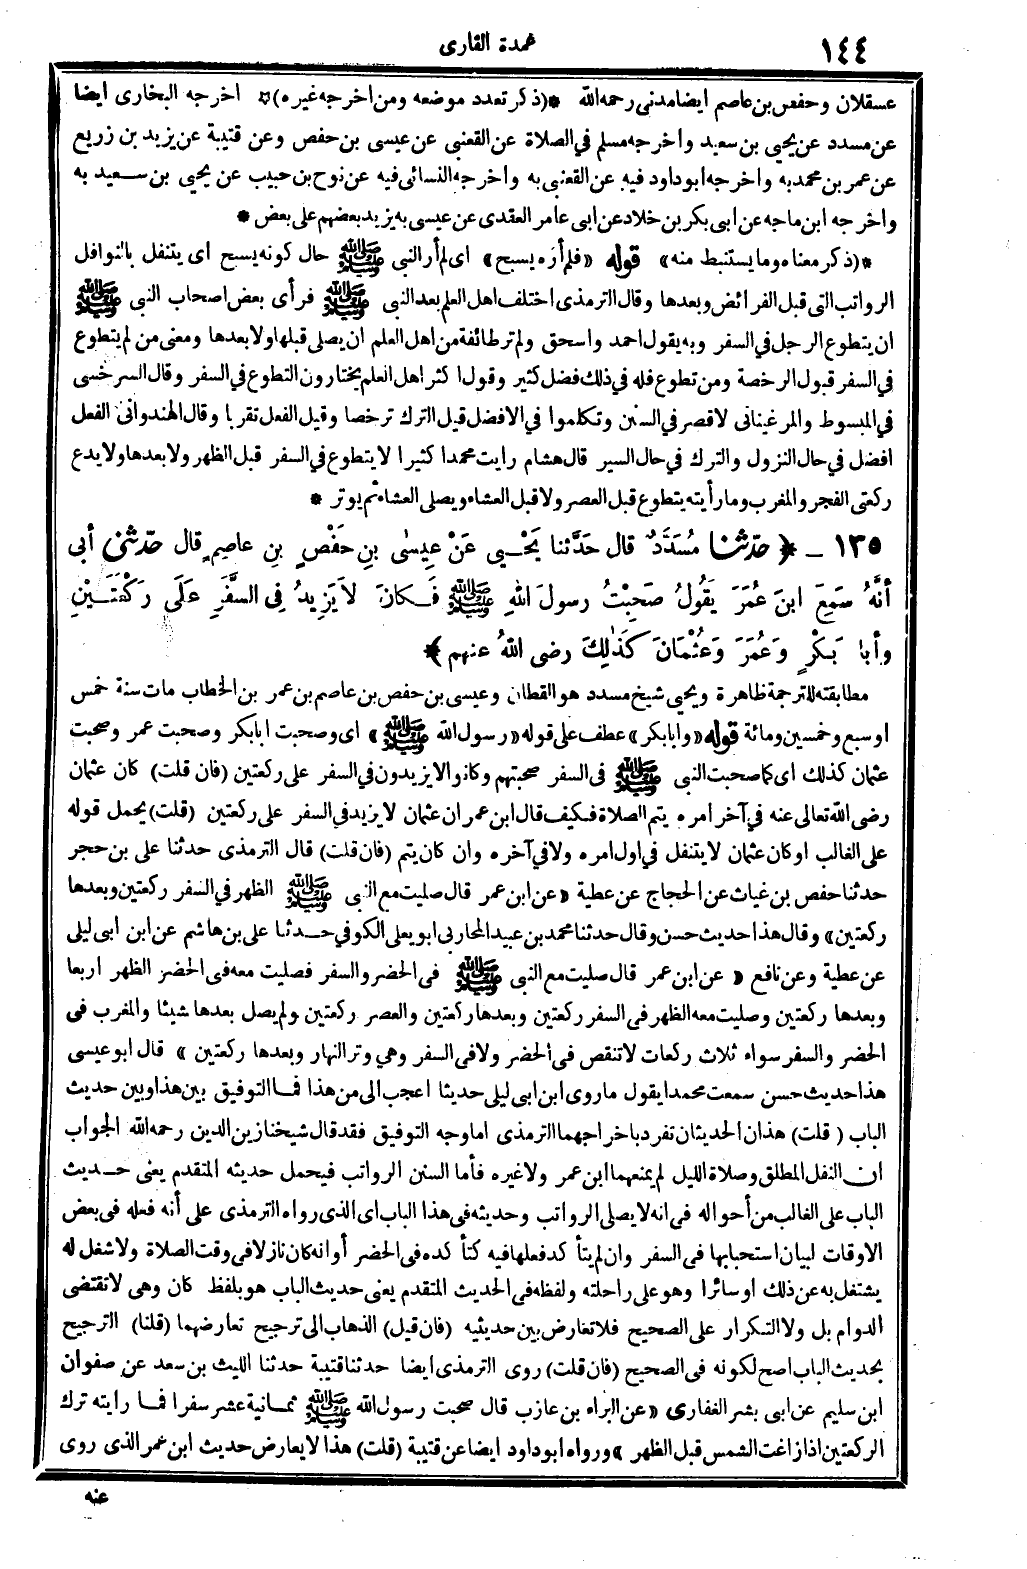 ١٤٤
عمدة القارى
عسقلان وحفص بن عاصم ايضا مدنى رحمه الله *(ذكر تعدد موضعه ومن اخرجه غيره)* اخرجه البخارى ايضا
عن مسدد عن يحيى بن سعيد وأخرجه مسلم في الصلاة عن القعنبى عن عيسى بن حفص وعن قتيبة عن يزيد بن زريع
عن عمر بن محمد به واخرجه ابو داود فيه عن القعنى به واخرجه النسائى فيه عن نوح بن حبيب عن يحيى بن سعيد به
واخرجه ابن ماجه عن ابى بكر بن خلاد عن ابى عامر العقدى عن عيسى به يزيد بعضهم على بعض *
*(ذكر معناه وما يستنبط منه» قوله «فلم أره يسبح» اى لم أر النبي ﷺ حال كونه يسبح اى يتنفل بالنوافل
الرواتب التى قبل الفرائض وبعدها وقال الترمذى اختلف اهل العلم بعد النبى ﷺ فرأى بعض اصحاب النبى ﷺ
ان يتطوع الرجل في السفر وبه يقول احمد واسحق ولم تر طائفة من اهل العلم ان يصلى قبلها ولا بعدها ومعنى من لم يتطوع
في السفر قبول الرخصة ومن تطوع فله في ذلك فضل كثير وقول اكثر اهل العلم يختارون التطوع في السفر وقال السرخسى
في المبسوط والمرغينانى لا قصر في السنن وتكلموا في الافضل قيل الترك ترخصا وقيل الفعل تقربا وقال الهندوانى الفعل
افضل في حال النزول والترك في حال السير قال هشام رايت محمدا كثيرا لا يتطوع في السفر قبل الظهر ولا بعدها ولا يدع
ركعتى الفجر والمغرب وما رأيته يتطوع قبل العصر ولا قبل العشاء ويصلى العشاء ثم يوتر *
١٣٥ ـ ﴿ حدّثنا مُسَدَّدٌ قال حَدَّثنا يَحْـيى عَنْ عِيسٰى بنِ حَفْصٍ بنِ عاصِمٍ قال حدّثنى أبى
أنَّهُ سَمِعَ ابنَ عُمَرَ يَقُولُ صَحِبْتُ رسولَ اللهِ ﷺ فَـكانَ لاَ يَزِيدُ فِى السَّفَرِ عَلَى رَكْعَتَـيْنِ
وأبا بَـكْرٍ وَعُمَرَ وَعُثْمَانَ كَذٰلِكَ رضى اللهُ عنهم ﴾
مطابقته للترجمة ظاهرة ويحيى شيخ مسدد هو القطان وعيسى بن حفص بن عاصم بن عمر بن الخطاب مات سنة خمس
او سبع وخمسين ومائة قوله «وابا بكر» عطف على قوله «رسول الله ﷺ» اى وصحبت ابا بكر وصحبت عمر وصحبت
عثمان كذلك اى كما صحبت النبى ﷺ فى السفر صحبتهم وكانوا لا يزيدون في السفر على ركعتين (فان قلت) كان عثمان
رضى الله تعالى عنه في آخر امره يتم الصلاة فكيف قال ابن عمر ان عثمان لا يزيد في السفر على ركعتين (قلت) يحمل قوله
على الغالب او كان عثمان لا يتنفل في اول امره ولا في آخره وان كان يتم (فان قلت) قال الترمذى حدثنا على بن حجر
حدثنا حفص بن غياث عن الحجاج عن عطية «عن ابن عمر قال صليت مع النبى ﷺ الظهر في السفر ركعتين وبعدها
ركعتين» وقال هذا حديث حسن وقال حدثنا محمد بن عبيد المحاربى ابو يعلى الكوفي حـدثنا على بن هاشم عن ابن ابى ليلى
عن عطية وعن نافع «عن ابن عمر قال صليت مع النبى ﷺ فى الحضر والسفر فصليت معه فى الحضر الظهر اربعا
وبعدها ركعتين وصليت معه الظهر فى السفر ركعتين وبعدها ركعتين والعصر ركعتين ولم يصل بعدها شيئا والمغرب فى
الحضر والسفر سواء ثلاث ركعات لا تنقص فى الحضر ولا فى السفر وهي وتر النهار وبعدها ركعتين» قال ابو عيسى
هذا حديث حسن سمعت محمدا يقول ما روى ابن ابى ليلى حديثا اعجب الى من هذا فمـا التوفيق بين هذا وبين حديث
الباب (قلت) هذان الحديثان تفرد باخراجهما الترمذى اما وجه التوفيق فقد قال شيخنا زين الدين رحمه الله الجواب
ان النفل المطلق وصلاة الليل لم يمنعهما ابن عمر ولا غيره فأما السنن الرواتب فيحمل حديثه المتقدم يعنى حـديث
الباب على الغالب من أحواله فى انه لا يصلى الرواتب وحديثه فى هذا الباب اى الذى رواه الترمذى على أنه فعله فى بعض
الاوقات لبيان استحبابها فى السفر وان لم يتأ كد فعلها فيه كتأ كده فى الحضر أو انه كان نازلا فى وقت الصلاة ولا شغل له
يشتغل به عن ذلك او سائرا وهو على راحلته ولفظه فى الحديث المتقدم يعنى حديث الباب هو بلفظ كان وهى لا تقتضى
الدوام بل ولا التكرار على الصحيح فلا تعارض بين حديثيه (فان قيل) الذهاب الى ترجيح تعارضهما (قلنا) الترجيح
بحديث الباب اصح لكونه فى الصحيح (فان قلت) روى الترمذى ايضا حدثنا قتيبة حدثنا الليث بن سعد عن صفوان
ابن سليم عن ابى بشر الغفارى «عن البراء بن عازب قال صحبت رسول الله ﷺ ثمـانية عشر سفرا فمـا رايته ترك
الركعتين اذا زاغت الشمس قبل الظهر» ورواه ابو داود ايضا عن قتيبة (قلت) هذا لا يعارض حديث ابن عمر الذى روى
عنه